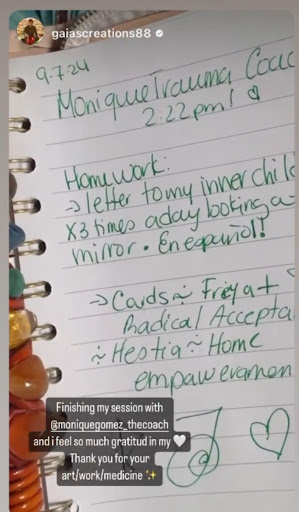 gaiascreations88
9-7-24
Monique Trauma Coac
2:22pm!
Homework:
→ letter to my inner child
x3 times a day looking a
mirror. En español!
→ Cards ~ Freya +
Radical Accepta
~ Hestia ~ Home
empaweramen
Finishing my session with
@moniquegomez_thecoach
and i feel so much gratitud in my 🤍
Thank you for your
art/work/medicine ✨